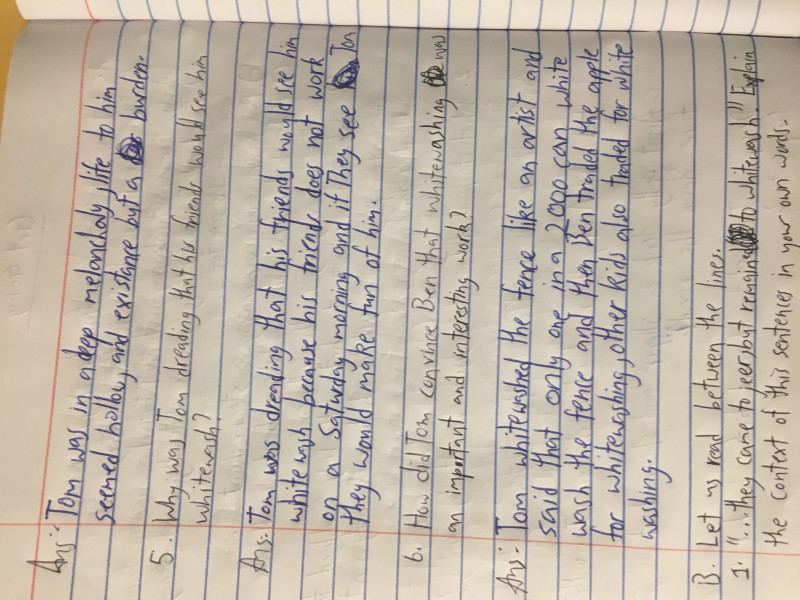 Ans:- Tom was in a deep melancholy life to him
seemed hollow, and existance but a burden.
5. Why was Tom dreading that his friends would see him
whitewash?
Ans:- Tom was dreading that his friends would see him
whitewash because his friends does not work
on a Saturday morning and if They see Tom
they would make fun of him.
6. How did Tom convince Ben that whitewashing was
an important and interesting work?
Ans:- Tom whitewashed the fence like an artist and
said that only one in a 2000 can white
wash the fence and then Ben traded the apple
for whitewashing, other kids also traded for white
washing.
B. Let us read between the lines.
1. "...they came to jeer, but remained to whitewash." Explain
the context of this sentences in your own words.